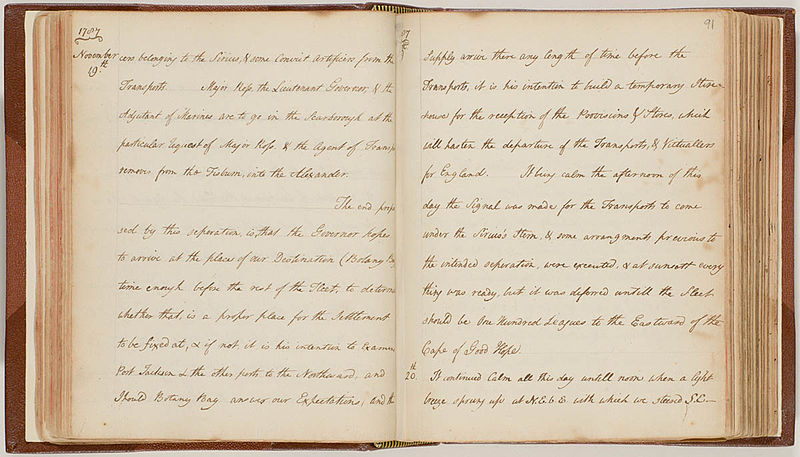 1787
November
19.th
cers belonging to the Sirius, & some Convict Artificers from the
Transports. Major Ross, the Lieutenant Governor, & the
Adjutant of Marines are to go in the Scarborough at the
particular request of Major Ross. & the Agent of Transp
removes from the Fisburn, into the Alexander.
The end propo
sed by this seperation, is, that the Governor hopes
to arrive at the place of our Destination (Botany Bay
time enough before the rest of the Fleet, to determ
whether that is a proper place for the Settlement
to be fixed at, & if not, it is his intention to Examin
Port Jackson & the other ports to the Northward, and
Should Botany Bay answer our Expectations, and the
91
Supply arrive there any length of time before the
Transports, it is his intention to build a temporary Store-
house for the reception of the Provisions & Stores, which
will hasten the departure of the Transports, & Victuallers
for England. It being calm the afternoon of this
day the Signal was made for the Transports to come
under the Sirius's Stern, & some arrangments previous to
the intended seperation, were executed, & at sunsett every
thing was ready, but it was deferred untill the Fleet
should be One Hundred Leagues to the Eastward of the
Cape of Good Hope.
20.th It continued Calm all this day untill noon when a light
breeze sprung up at N.E.b.E. with which we steered S.E.—